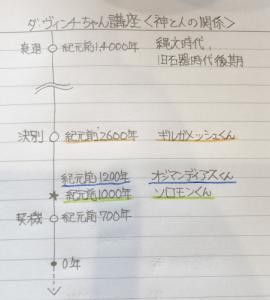 ダ・ヴィンチちゃん講座<神と人の関係>
衰退 紀元前14000年 縄文時代、
旧石器時代後期
決別 紀元前2600年 ギルガメッシュくん
紀元前1200年 オジマンディアスくん
紀元前1000年 ソロモンくん
契機 紀元前700年
0年